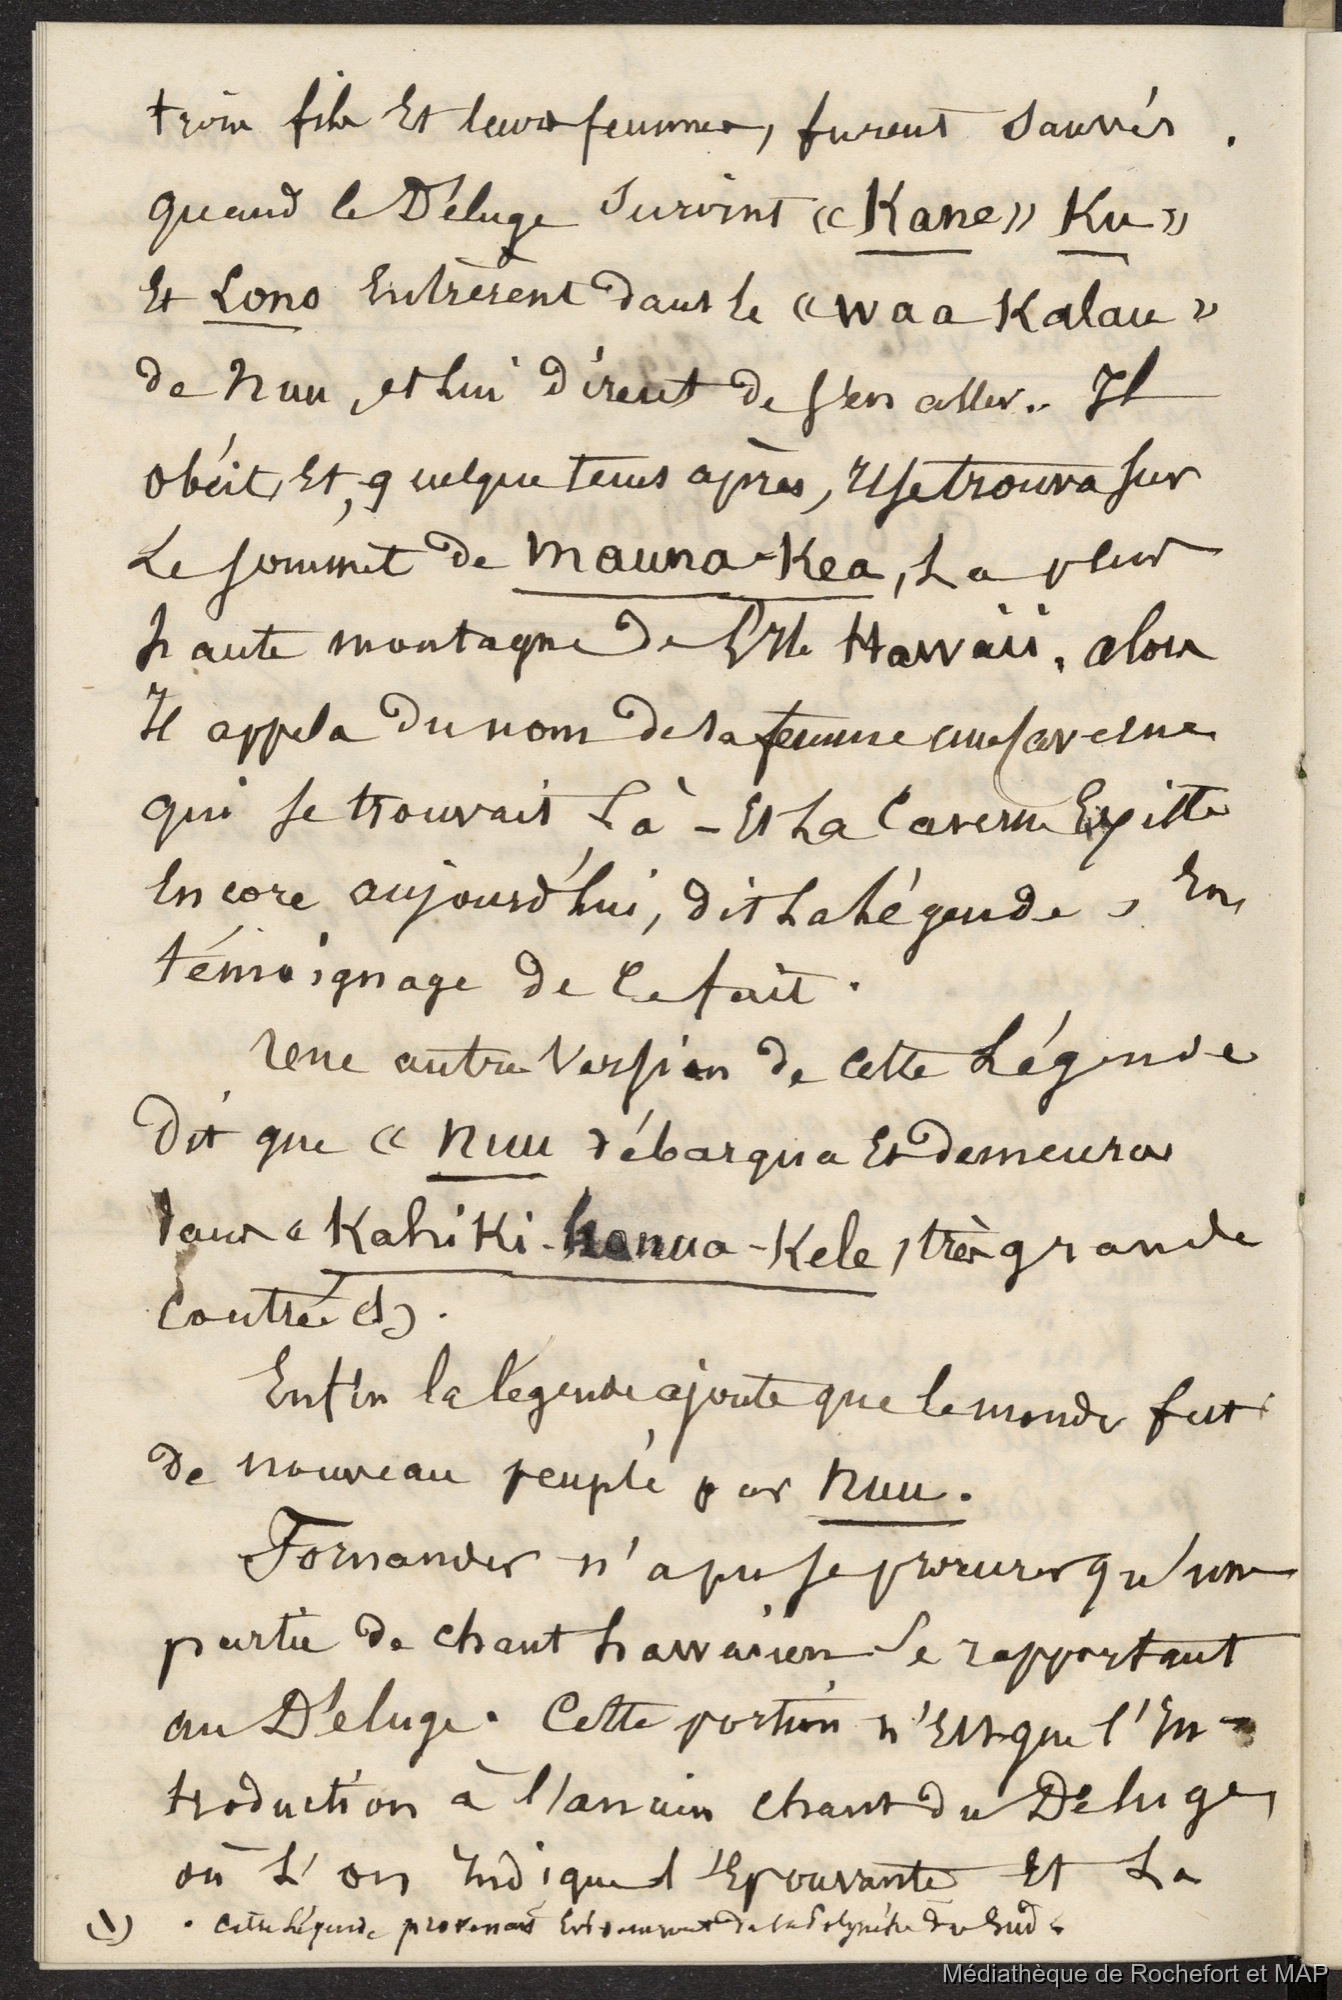 trois fils Et leurs femmes, furent Sauvés.
quand le Déluge Survint « Kane » Ku »
Et Lono Entrèrent dans le « waa Kalau »
de Nuu, et lui dirent de s'en aller. Il
obéit, Et, quelque tems après, Il se trouva sur
Le sommet de Mauna-Kea, La plus
haute montagne de l'Ile Hawaii, alors
Il appela du nom de sa femme une Caverne
qui se trouvait Là - Et La Caverne Existe
Encore aujourd'hui, dit La Légende, En
témoignage de Ce fait.
Une autre Version de cette Légende
Dit que « Nuu débarqua Et demeura
dans « Kahiki-honua-Kele, très grande
Contrée (1).
Enfin la légende ajoute que le monde fut
de nouveau peuplé par Nuu.
Fornander n'a pu se procurer qu'une
partie de chant hawaiien se rapportant
au Déluge. Cette portion n'Est que l'In-
troduction à l'ancien Chant du Déluge,
où L'on Indique l'Epouvante Et La
(1) . Cette Légende provenant Evidemment de la Polynésie du Sud.
Médiathèque de Rochefort et MAP